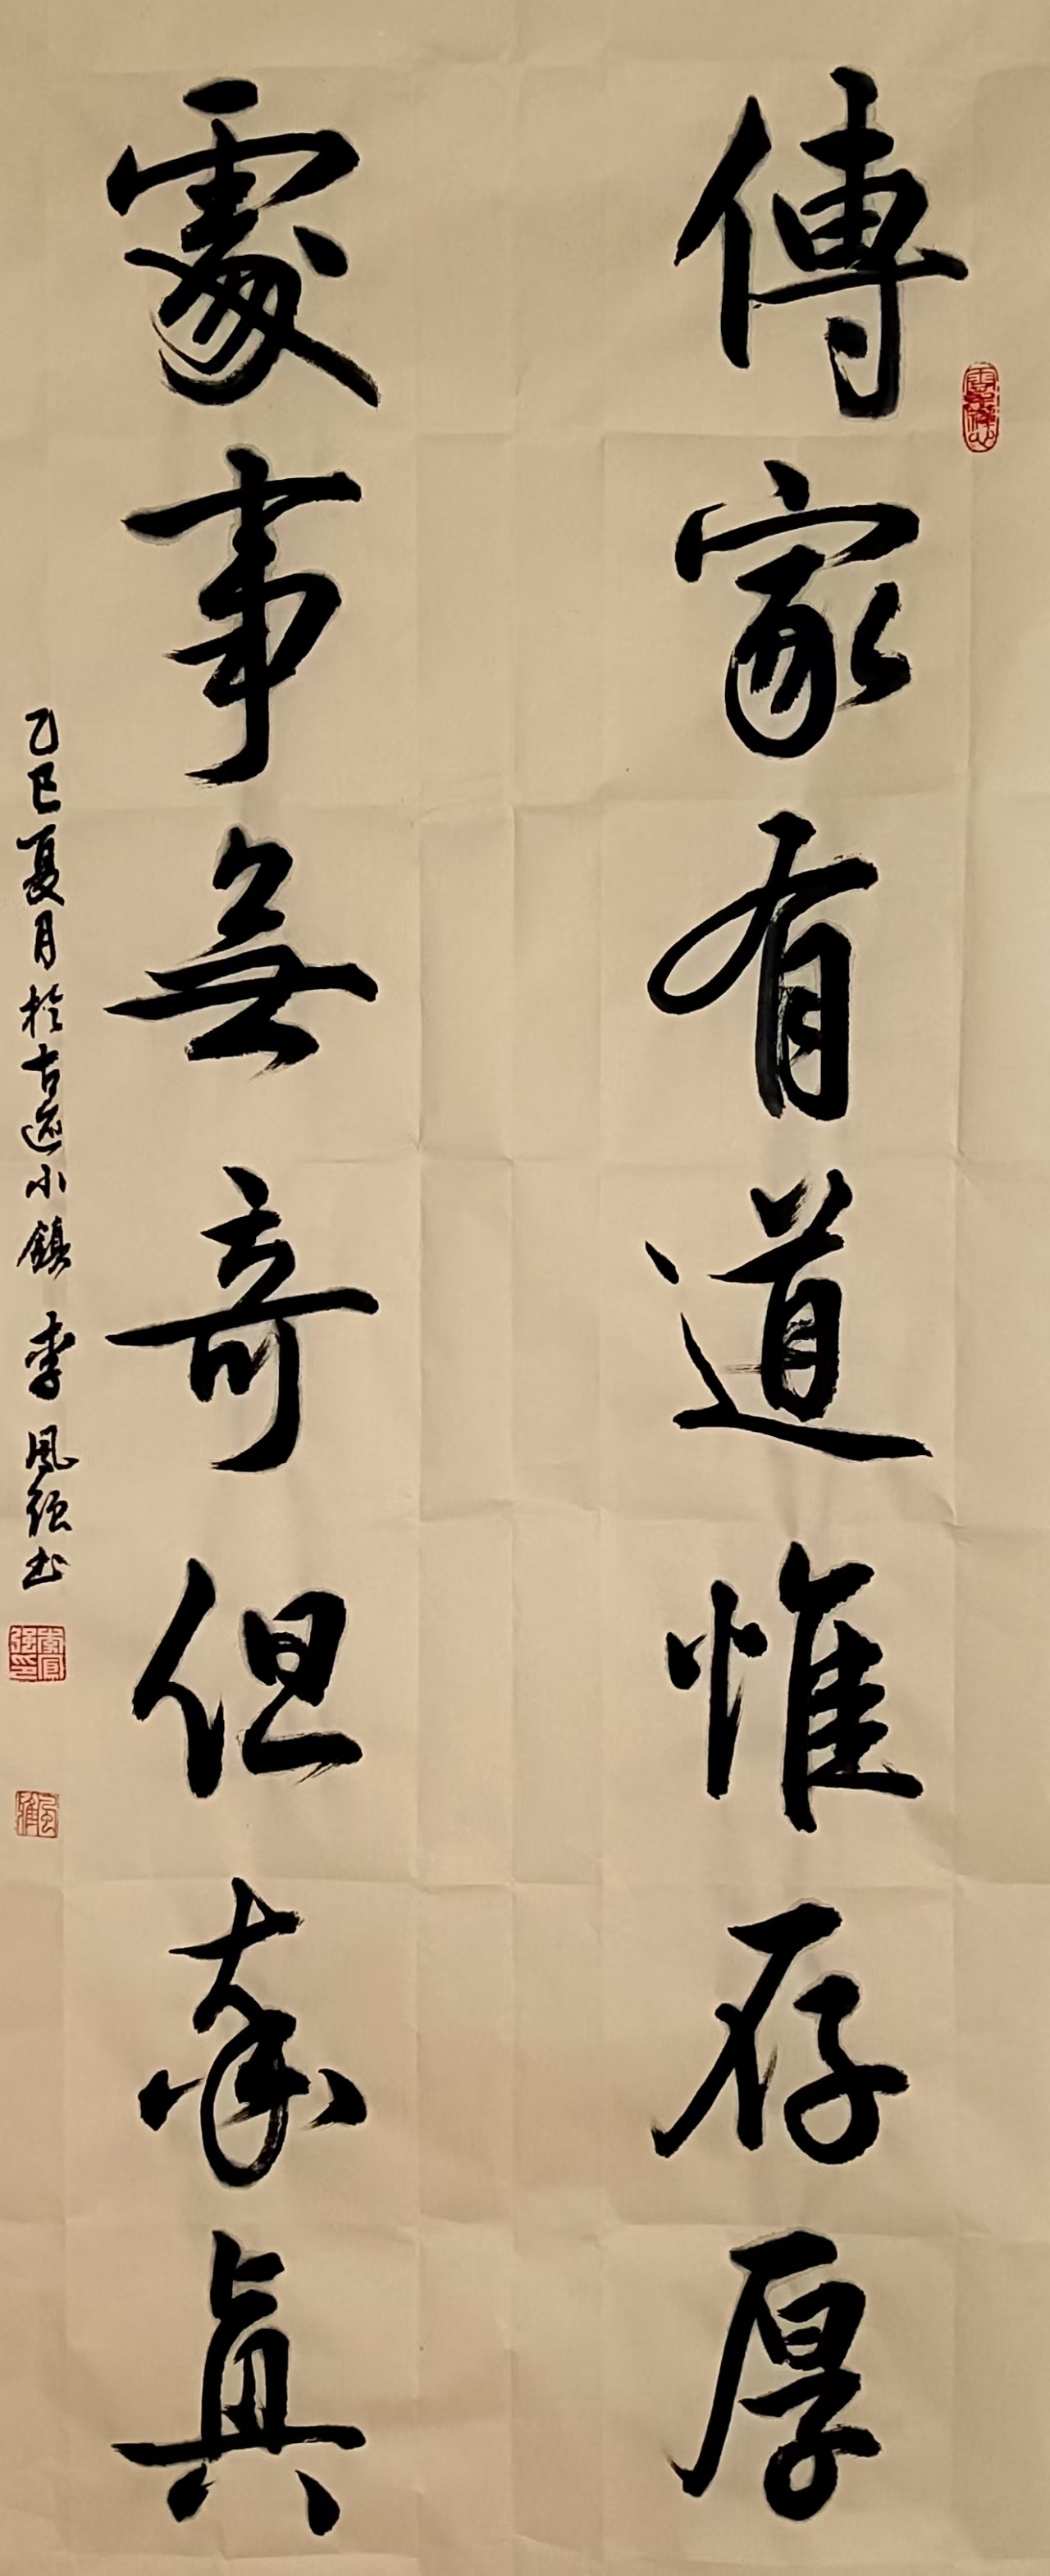 傳家有道惟存厚
處事無奇但率真
乙巳夏月於古逺小鎮 李鳳強书